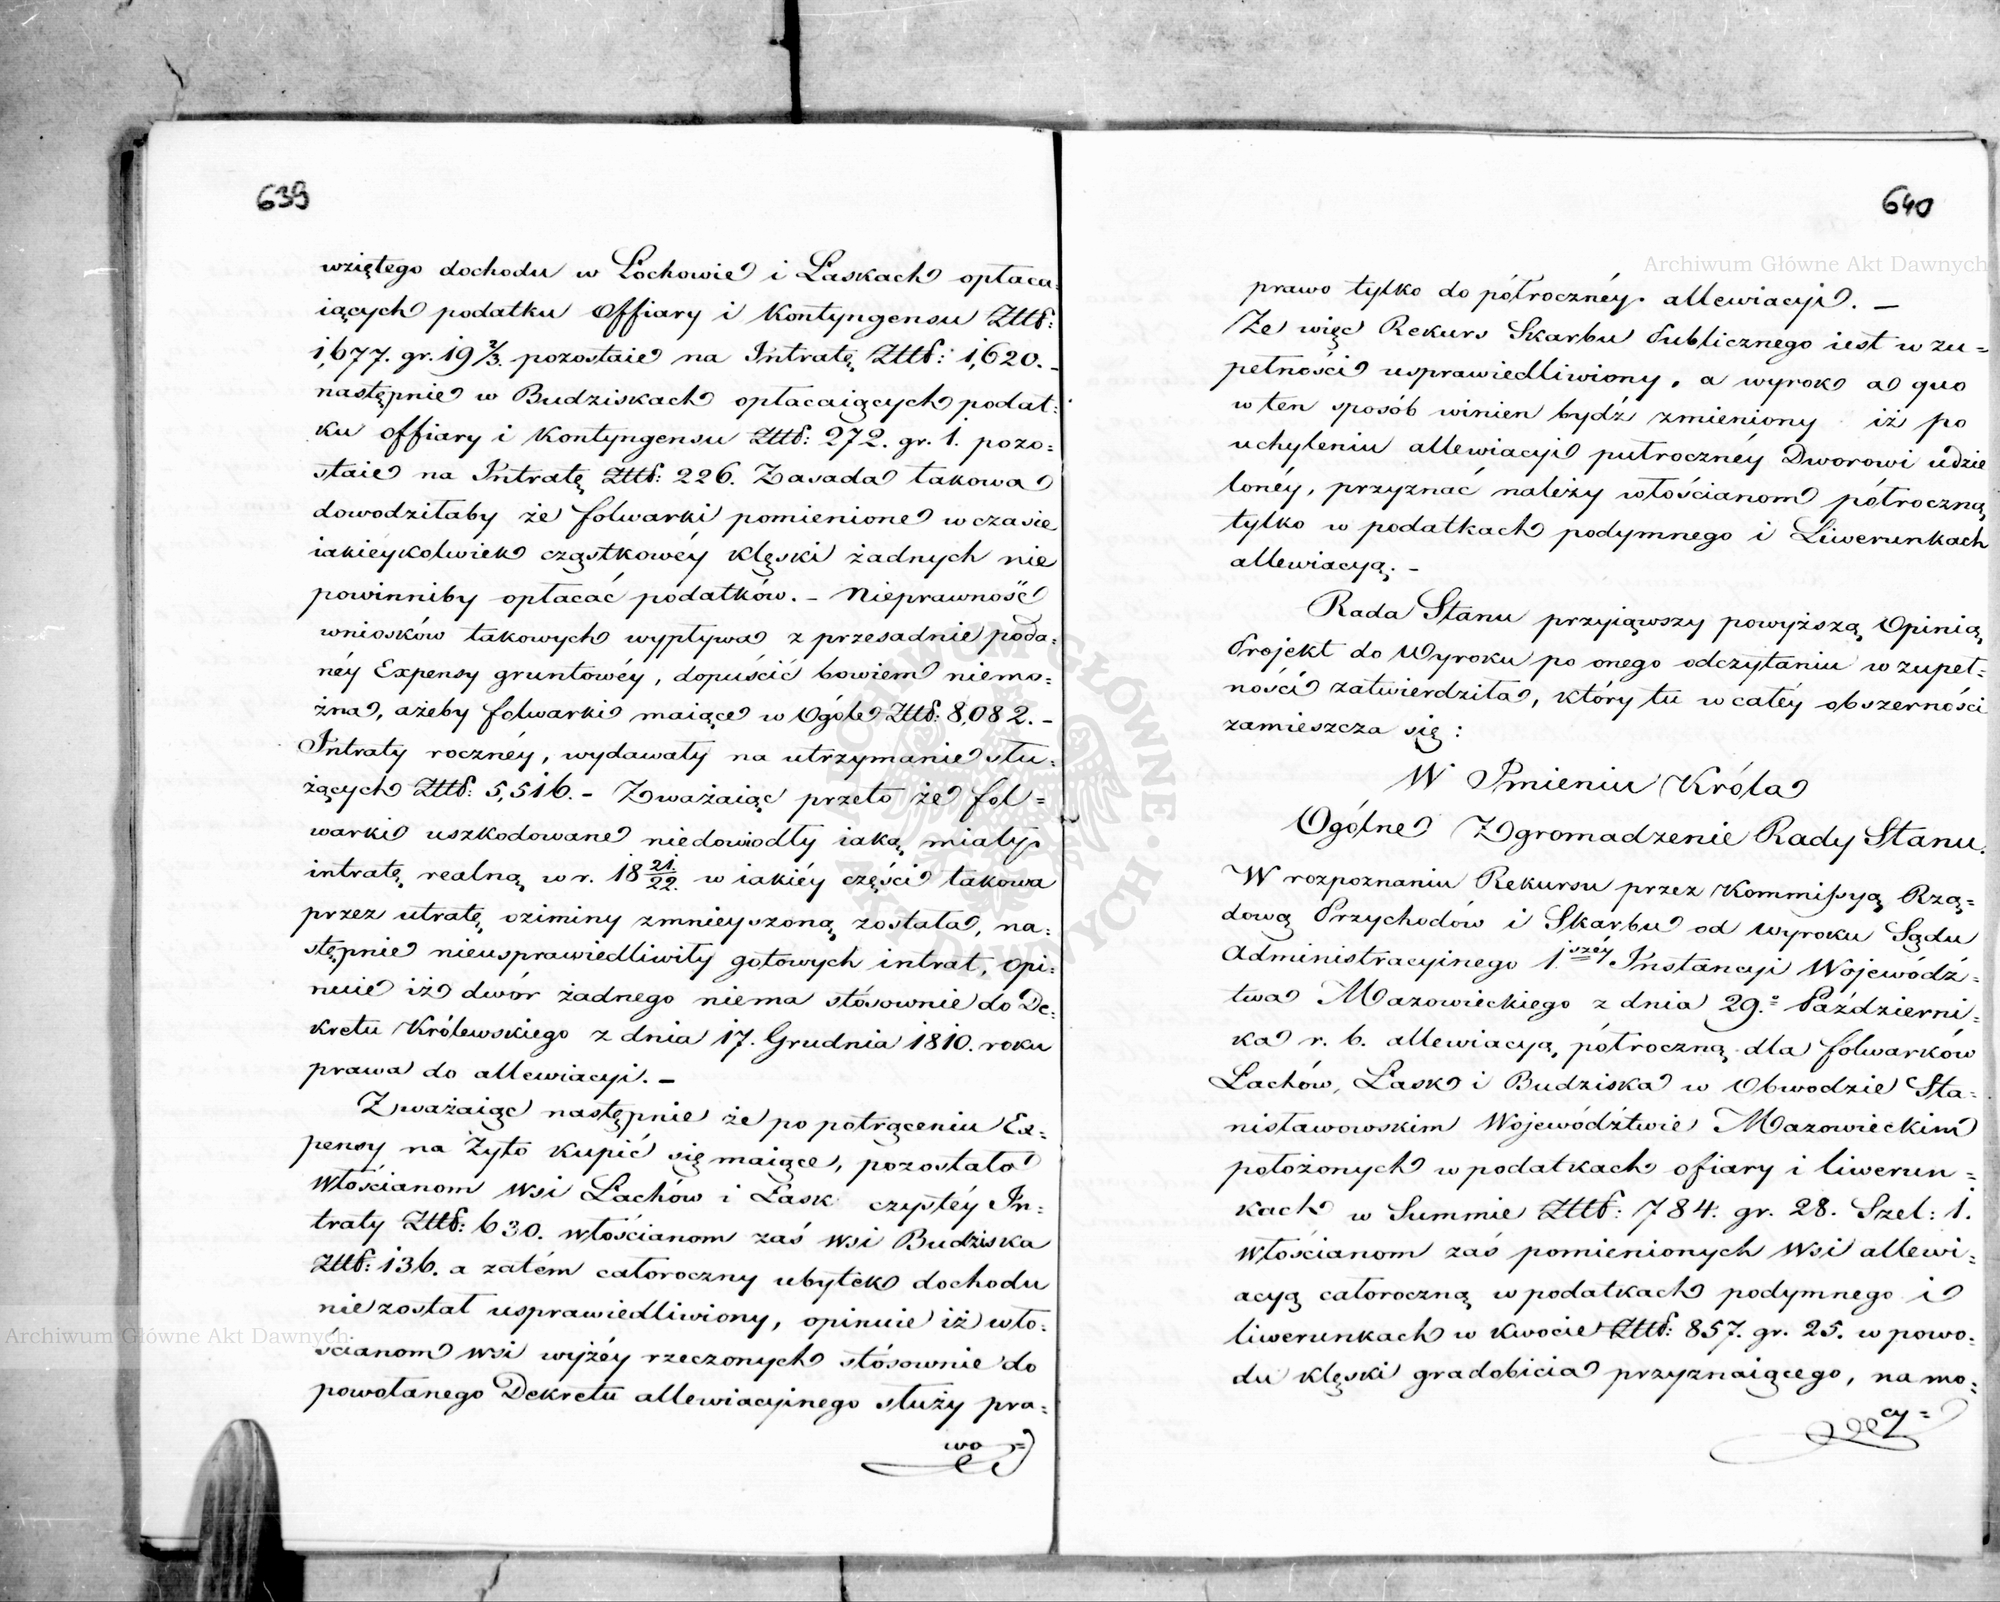 639
wziętego dochodu w Łochowie i Łaskach opłaca-
iących podatku Offiary i Kontyngensu Złtb:
1,677. gr. 19 2/3. pozostaie na Intratę Złtb: 1,620. -
następnie w Budziskach opłacaiących podat:
ku offiary i Kontyngensu Złtb: 272. gr. 1. pozo:
staie na Intratę Złtb: 226. Zasada takowa
dowodziłaby że folwarki pomienione w czasie
iakieykolwiek cząstkowéy klęski żadnych nie
powinniby opłacać podatków. - Nieprawność
wniosków takowych wypływa z przesadnie poda:
néy Expensy gruntowéy, dopuścić bowiem niemo:
żna, ażeby folwarki maiące w Ogóle Złtb: 8,082. -
Intraty rocznéy, wydawały na utrzymanie słu:
żących Złtb: 5,516. - Zważaiąc przeto że fol=
warki uszkodowane niedowiodły iaką miały
intratę realną w r. 18 21/22. w iakiéy części takowa
przez utratę oziminy zmnieyszoną została, na:
stępnie nieusprawiedliwiły gotowych intrat, Opi:
niuie iż dwór żadnego niema stósownie do De:
kretu Królewskiego z dnia 17. Grudnia 1810. roku
prawa do allewiacyi. -
Zważaiąc następnie że po potrąceniu Ex:
pensy na Żyto kupić się maiące, pozostało
Włościanom Wsi Łachów i Łask czystéy In:
traty Złtb: 630. włościanom zaś Wsi Budziska
Złtb: 136. a zatém całoroczny ubytek dochodu
nie został usprawiedliwiony, opiniuie iż wło:
ścianom wsi wyżéy rzeczonych stósownie do
powołanego Dekretu allewiacyinego służy pra:
wo=
640
prawo tylko do półrocznéy allewiacyi. -
Że więc Rekurs Skarbu Publicznego iest w zu=
pełności usprawiedliwiony, a wyrok a quo
w ten sposób winien bydź zmieniony iż po
uchyleniu allewiacyi pułrocznéy Dworowi udzie
lonéy, przyznać należy włościanom półroczną
tylko w podatkach podymnego i Liwerunkach
allewiacyą. -
Rada Stanu przyiąwszy powyższą Opinią,
Projekt do Wyroku po onego odczytaniu w zupeł:
ności zatwierdziła, który tu w całéy obszerności
zamieszcza się:
W Imieniu Króla
Ogólne Zgromadzenie Rady Stanu.
W rozpoznaniu Rekursu przez Kommissyą Rzą=
dową Przychodów i Skarbu od wyroku Sądu
Administracyinego 1széy Instancyi Wojewódz=
twa Mazowieckiego z dnia 29.o Październi=
ka r. b. allewiacyą półroczną dla folwarków
Łachów, Łask i Budziska w Obwodzie Sta:
nisławowskim Województwie Mazowieckim
położonych w podatkach ofiary i liwerun=
kach w Summie Złtb: 784. gr. 28. Szel: 1.
Włościanom zaś pomienionych Wsi allewi=
acyą całoroczną w podatkach podymnego i
liwerunkach w kwocie Złtb: 857. gr. 25. w powo:
du klęski gradobicia przyznaiącego, na mo:
cy=
Archiwum Główne Akt Dawnych
Archiwum Główne Akt Dawnych
ARCHIWUM GŁÓWNE AKT DAWNYCH